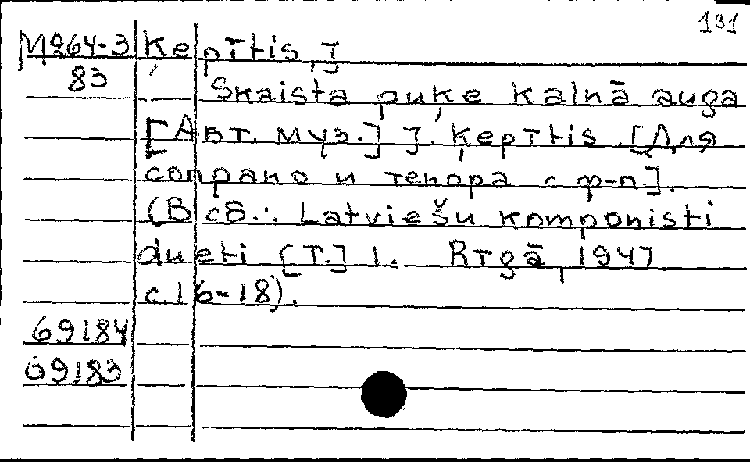 131
М964-3 Ķepītis, J
83 Skaista puķe kalnā auga
[Авт. муз.] J. Ķepītis. [Для
сопрано и тенора с ф-п].
(В сб.: Latviešu komponisti
dueti [T.] 1. Rīgā, 1947
с.16-18).
69184
69183